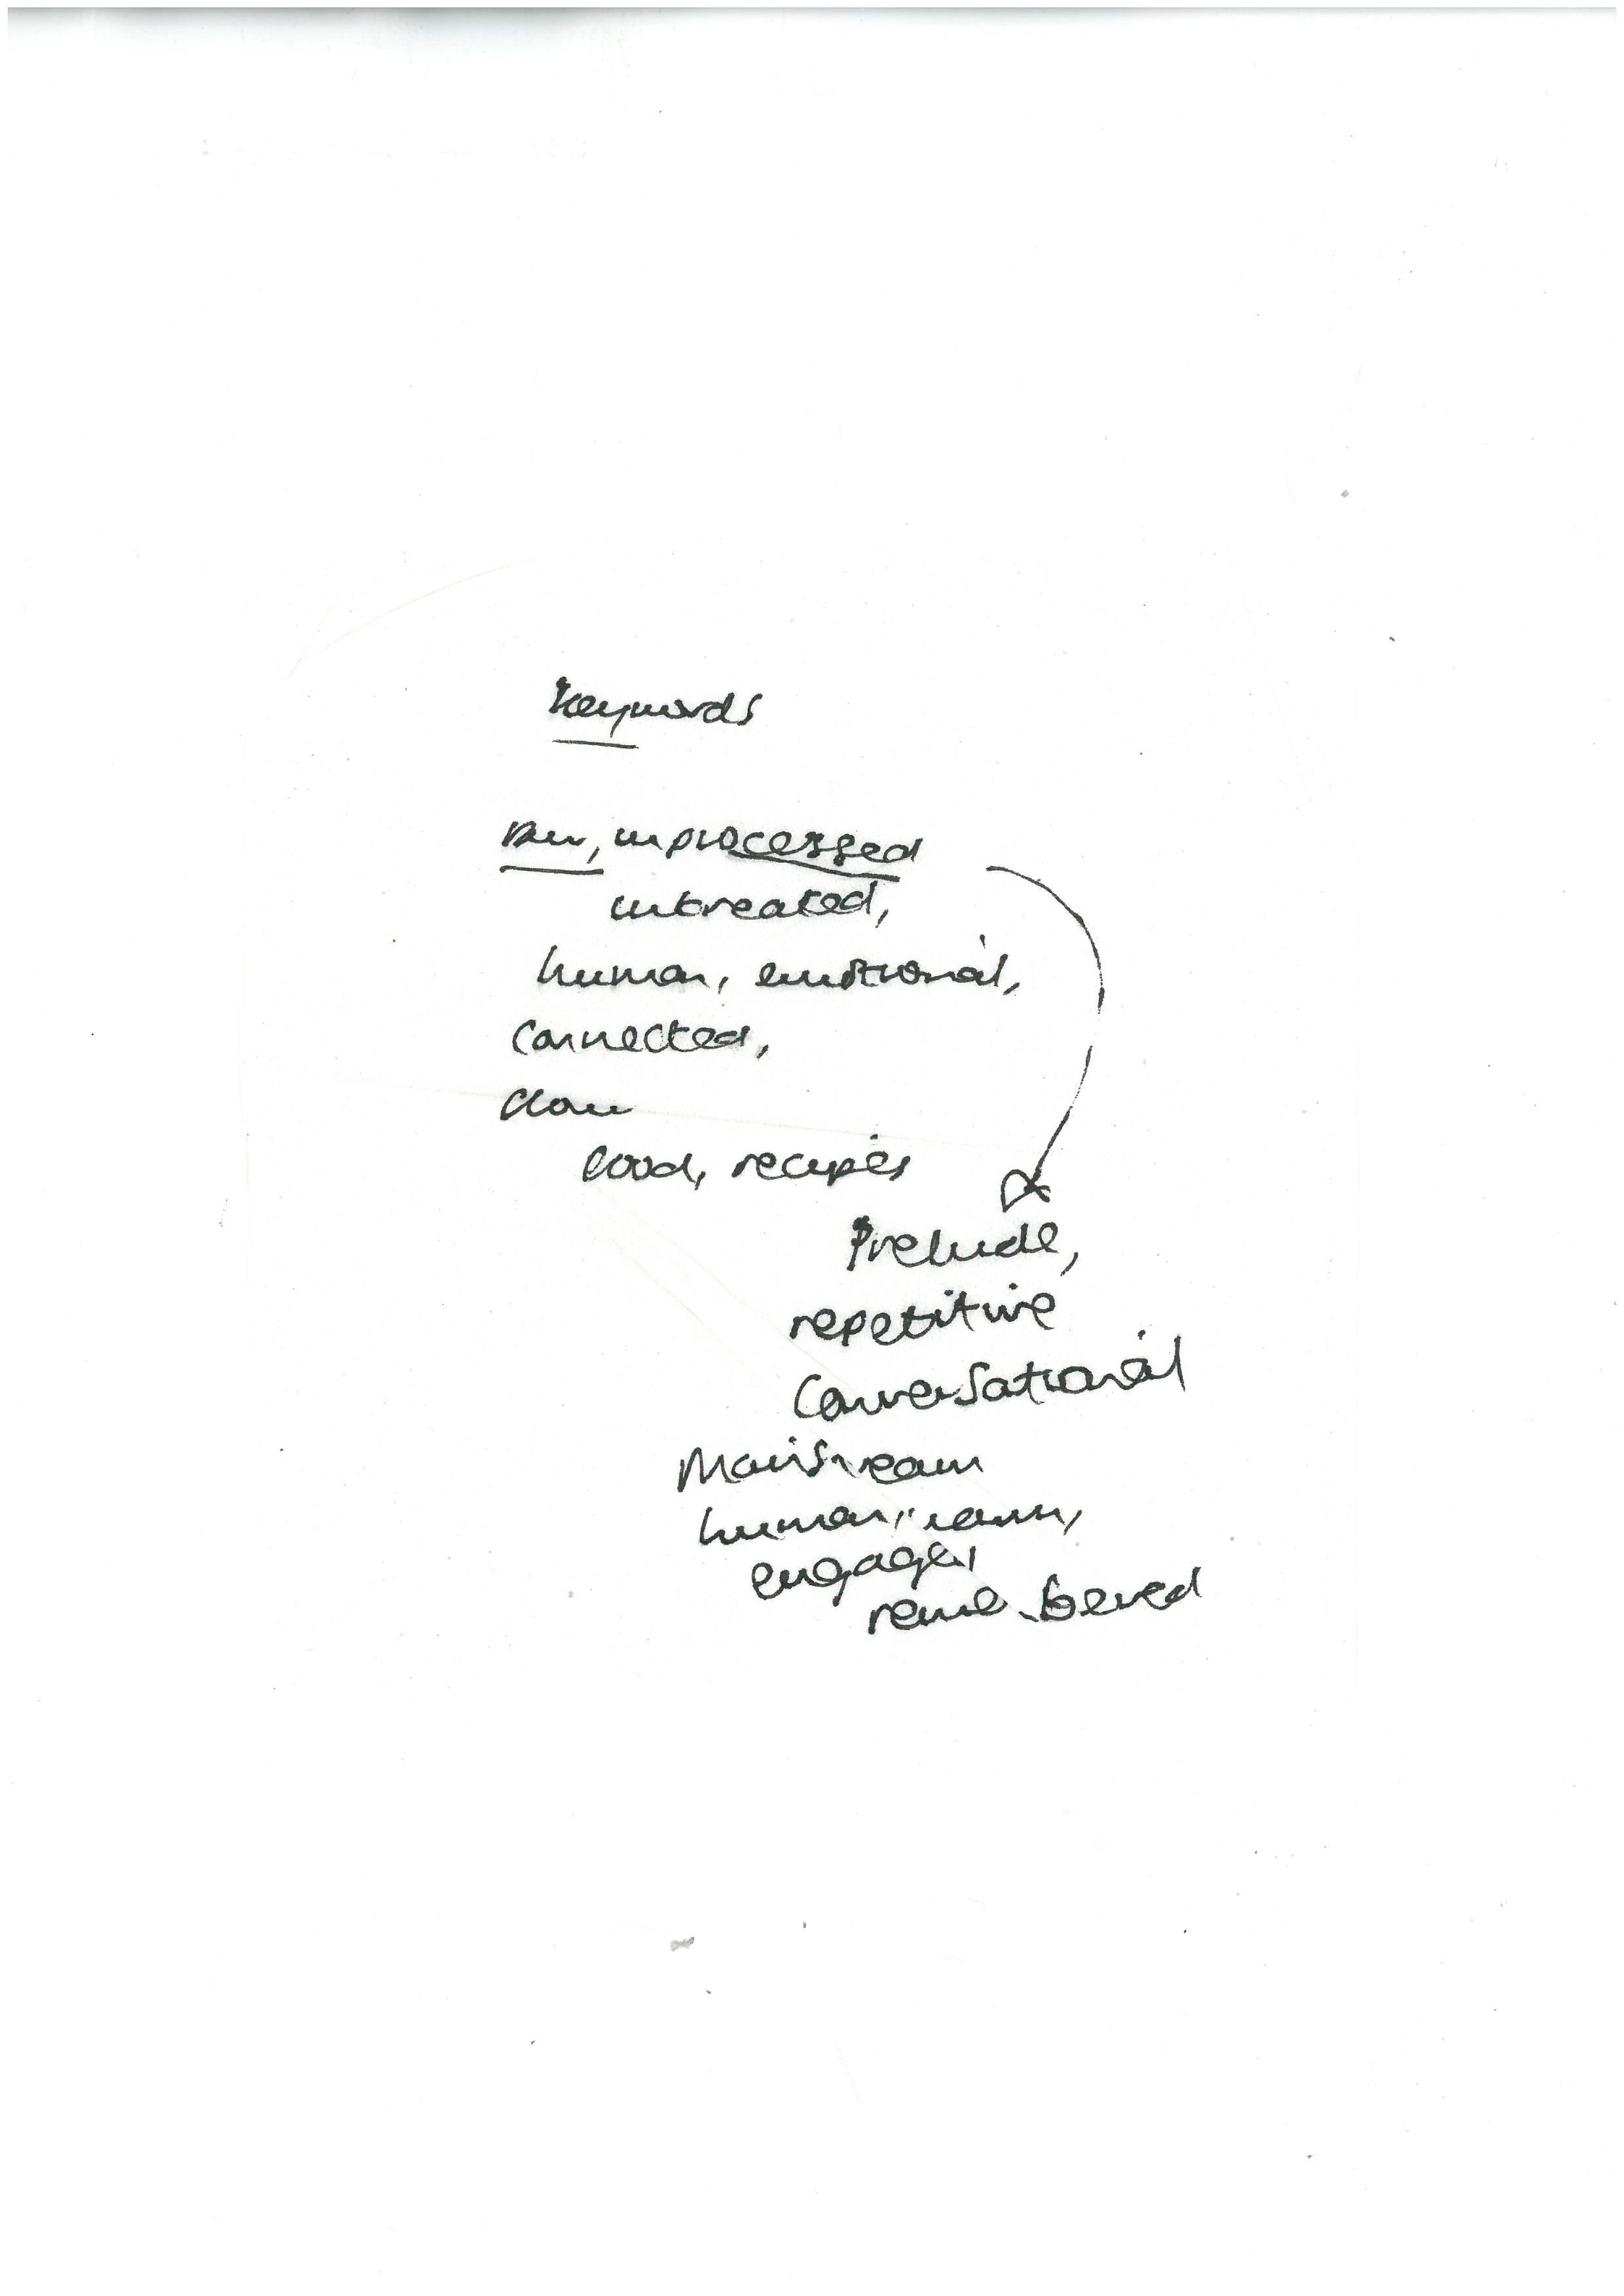 Keywords
Raw, unprocessed
untreated,
human, emotional,
connected,
food, recipes
Prelude,
repetitive
Conversational
Mainstream
human,
engage,
remembered